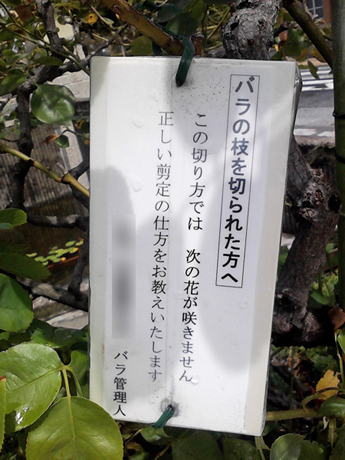 バラの枝を切られた方へ
この切り方では 次の花が咲きません
正しい剪定の仕方をお教えいたします
バラ管理人